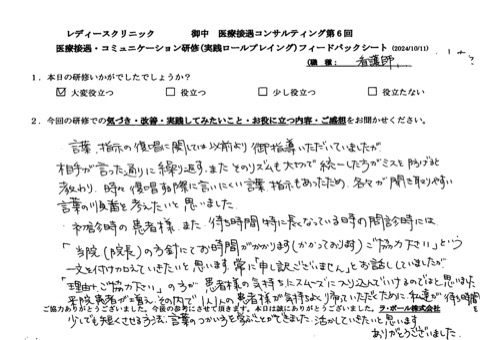 レディースクリニック　　　　御中　医療接遇コンサルティング第6回
医療接遇・コミュニケーション研修(実践ロールプレイング)フィードバックシート (2024/10/11)
(職　種：看護師
1. 本日の研修いかがでしたでしょうか?
☑ 大変役立つ　□ 役立つ　□ 少し役立つ　□ 役立たない
2. 今回の研修での気づき・改善・実践してみたいこと・お役に立つ内容・ご感想をお聞かせください。
言葉、指示の復唱に関しては以前より御指導いただいていましたが
相手が言った通りに繰り返す、またそのリズムも大切で統一した方がミスを防げると
教わり、時々復唱する際に言いにくい言葉、指示もあったため、各々が聞き取りやすい
言葉の順番を考えたいと思いました。
初診時の患者様、また、待ち時間特に長くなっている時の問診時には、
「当院(院長)の方針にてお時間がかかります(かかっております)ご協力下さい」という
一文を付け加えていきたいと思います。常に「申し訳ございません」とお話ししていましたが、
「理由+ご協力下さい」の方が患者様の気持ちにスムーズに入り込んでいけるのではと思いました。
来院患者が増え、その内で1人1人の患者様が気持ちよく帰っていただくために、私達が待ち時間を
ご協力ありがとうございました。今後の参考にさせて頂きます。本日は誠にありがとうございました。ラ・ポール株式会社
少しでも短くさせる方法、言葉のつかい方を学ぶことができました。活かしていきたいと思います
ありがとうございました。